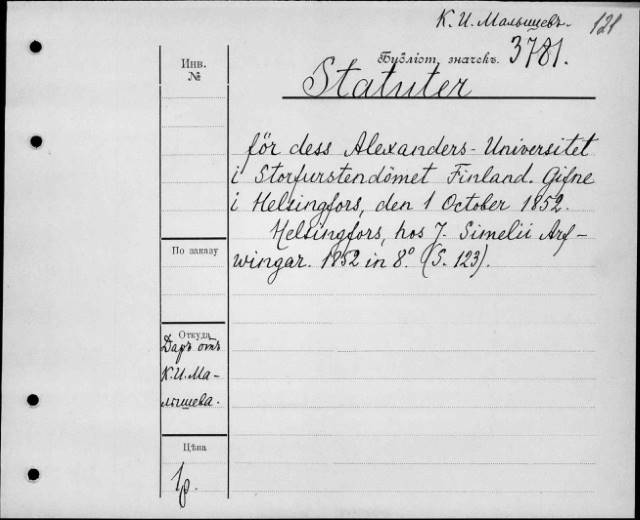 К. И. Малышевъ.
121
Библіот. значекъ. 3781.
Инв.
№
Statuter
för dess Alexanders-Universitet
i Storfurstendömet Finland. Gifne
i Helsingfors, den 1 October 1852.
Helsingfors, hos J. Simelii Arf-
wingar. 1852 in 8.° (S. 123).
По заказу
Откуда
Даръ отъ
К. И. Ма-
лышева.
Цѣна
1 р.